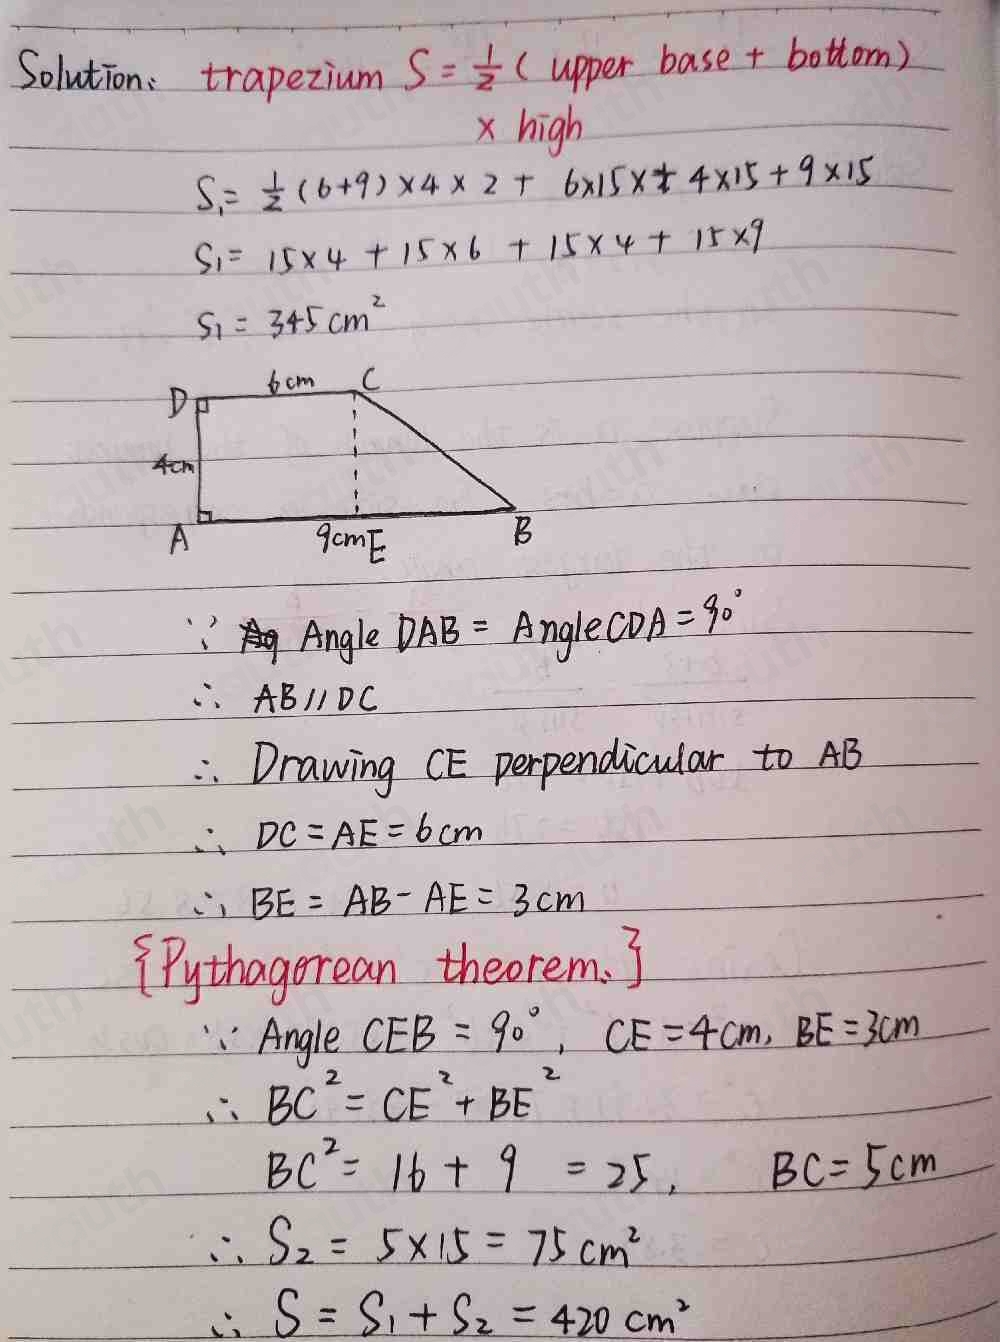 Solution: trapezium S = 1/2 ( upper base + bottom)
× high
S₁ = 1/2 (6+9) × 4 × 2 + 6×15 + 4×15 + 9×15
S₁ = 15×4 + 15×6 + 15×4 + 15×9
S₁ = 345 cm²
D 6cm C
4cm
A 9cm E B
∵ Angle DAB = Angle CDA = 90°
∴ AB // DC
∴ Drawing CE perpendicular to AB
∴ DC = AE = 6cm
∴ BE = AB - AE = 3cm
{Pythagorean theorem.}
∵ Angle CEB = 90°, CE = 4cm, BE = 3cm
∴ BC² = CE² + BE²
BC² = 16 + 9 = 25, BC = 5cm
∴ S₂ = 5×15 = 75 cm²
∴ S = S₁ + S₂ = 420 cm²